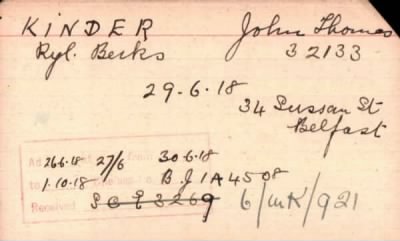 KINDER John Thomas
Ryl. Berks 32133
29-6-18
34 Sussan St
Belfast
Ad 26.6.18 27/6 from 30-6-18
to 1.10.18 B.J.1A4508
Received S C E 3269 6/MK/921